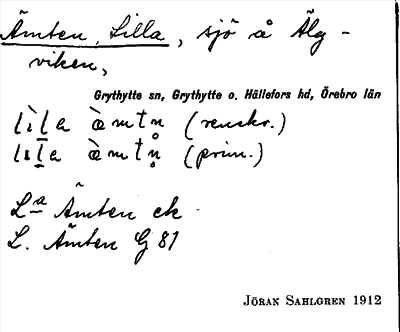 Ämten, Lilla, sjö å Älg-
viken,
Grythytte sn, Grythytte o. Hällefors hd, Örebro län
lìla àmtn̥ (renskr.)
lɩla àmtn̥ (prim.)
Lª Ämten ek
L. Ämten G 81
JÖRAN SAHLGREN 1912